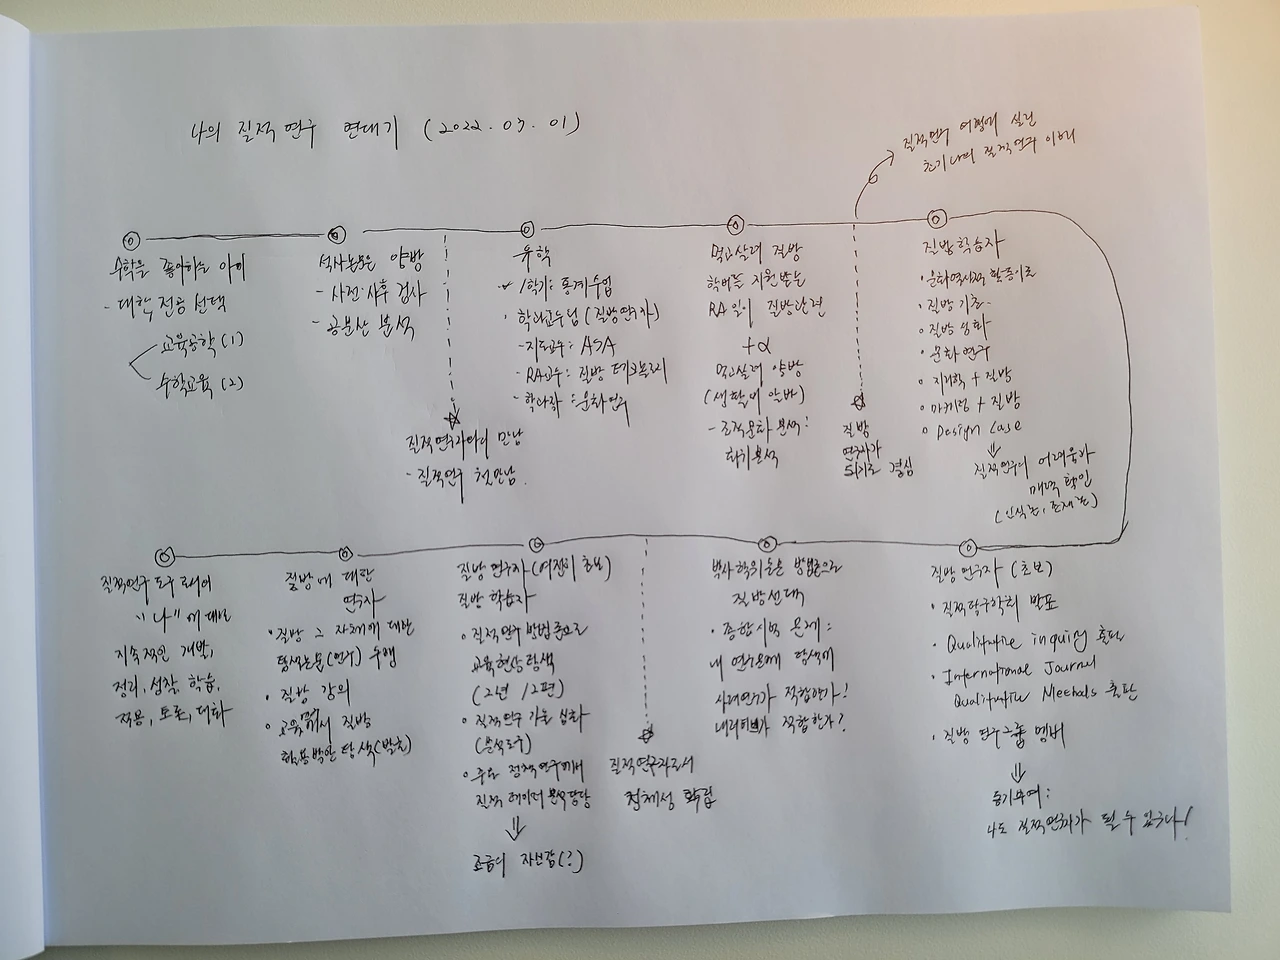 나의 질적연구 연대기 (2022.03.01)
질적연구 여정에 실린
초기 나의 질적연구 이해
수학을 좋아하는 아이
- 대학 전공 선택
교육공학(1)
수학교육(2)
석사논문은 양방
- 사전·사후 검사
- 공분산 분석
질적연구자와의 만남
- 질적연구 첫만남.
유학
1학기: 통계수업
· 학과교수님 (질방연구자)
- 지도교수: ASA
- RA교수: 질방 테크놀로지
- 학과장: 문화연구
먹고살려 질방
학비를 지원받는
RA일이 질방관련
+α
먹고살려 양방
(생활비 알바)
- 조직문화 분석:
회기분석
질방
연구자가
되기로 결심
질방학습자
· 문화역사적 활동이론
· 질방 기초
· 질방 심화
· 문화연구
· 지리학 + 질방
· 마케팅 + 질방
· Design Case
⇓
질적연구의 어려움과
매력 확인
(인식론, 존재론)
질방 연구자 (초보)
· 질적탐구학회 발표
· Qualitative inquiry 출판
· International Journal
Qualitative Methods 출판
· 질방 연구그룹 멤버
⇓
동기부여:
나도 질적연구자가 될 수 있구나!
박사학위논문 방법론으로
질방선택
· 종합시험 문제:
내 연구문제 탐색에
사례연구가 적합한가!
내러티브가 적합한가?
질적연구자로서
정체성 확립
질방 연구자 (여전히 초보)
질방 학습자
· 질적연구 방법론으로
교육현상탐색
(2년 12편)
· 질적연구 기술 심화
(분석도구)
· 주요 정책연구에서
질적 데이터 분석담당
⇓
조금의 자신감(?)
질방에 대한
연구자
· 질방 그 자체에 대한
탐색논문(연구) 수행
· 질방 강의
· 교육에서 질방
활용방안 탐색(발표)
질적연구 도구로서의
"나"에 대한
지속적인 개발,
정리, 성찰, 학습,
적용, 토론, 대화